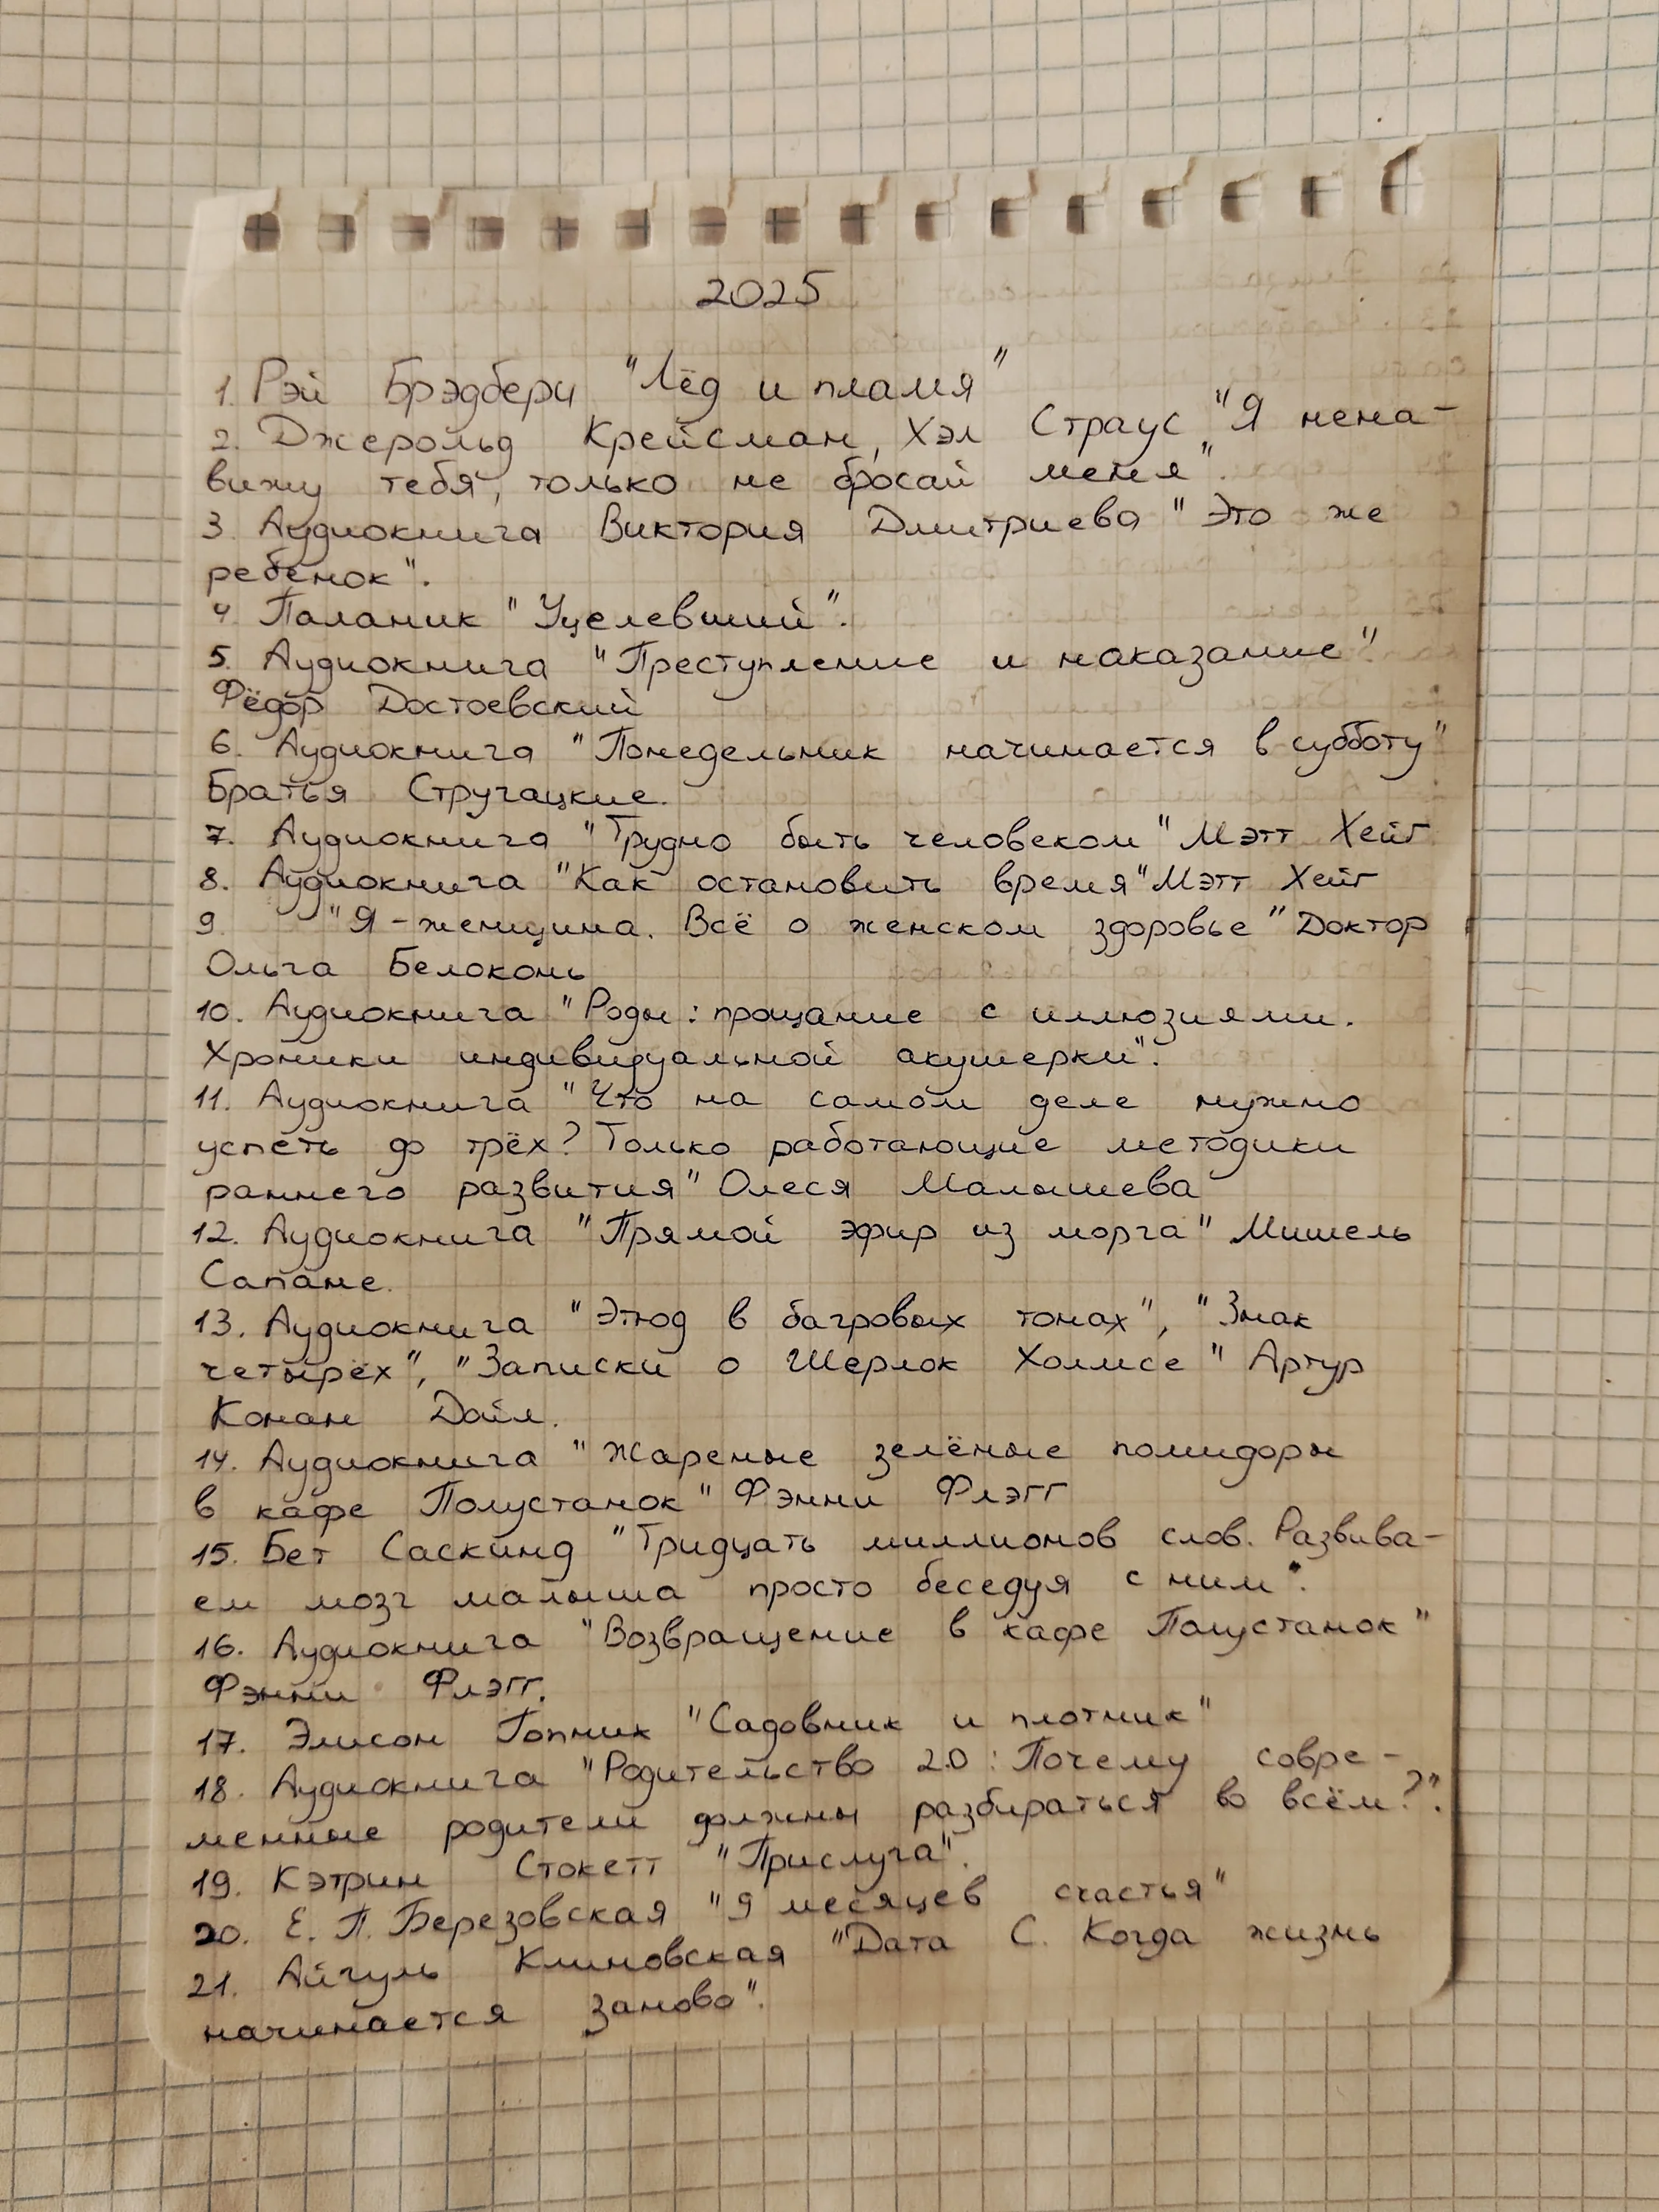 2025
1. Рэй Брэдбери "Лёд и пламя"
2. Джерольд Крейсман, Хэл Страус "Я нена-
вижу тебя, только не бросай меня".
3 Аудиокнига Виктория Дмитриева "Это же
ребенок".
4 Паланик "Уцелевший".
5. Аудиокнига "Преступление и наказание"
Фёдор Достоевский
6. Аудиокнига "Понедельник начинается в субботу"
Братья Стругацкие.
7. Аудиокнига "Трудно быть человеком" Мэтт Хейг
8. Аудиокнига "Как остановить время" Мэтт Хейг
9 "Я - женщина. Всё о женском здоровье" Доктор
Ольга Белоконь
10. Аудиокнига "Роды: прощание с иллюзиями.
Хроники индивидуальной акушерки".
11. Аудиокнига "Что на самом деле нужно
успеть до трёх? Только работающие методики
раннего развития" Олеся Малышева
12. Аудиокнига "Прямой эфир из морга" Мишель
Сапане.
13. Аудиокнига "Этюд в багровых тонах", "Знак
четырёх", "Записки о Шерлок Холмсе" Артур
Конан Дойл.
14. Аудиокнига "Жареные зелёные помидоры
в кафе Полустанок" Фэнни Флэгг
15. Бет Саскинд "Тридцать миллионов слов. Развива-
ем мозг малыша просто беседуя с ним".
16. Аудиокнига "Возвращение в кафе Полустанок"
Фэнни Флэгг.
17. Элисон Гопник "Садовник и плотник"
18. Аудиокнига "Родительство 2.0: Почему совре-
менные родители должны разбираться во всём?".
19. Кэтрин Стокетт "Прислуга".
20. Е. П. Березовская "9 месяцев счастья"
21. Айгуль Климовская "Дата С. Когда жизнь
начинается заново".